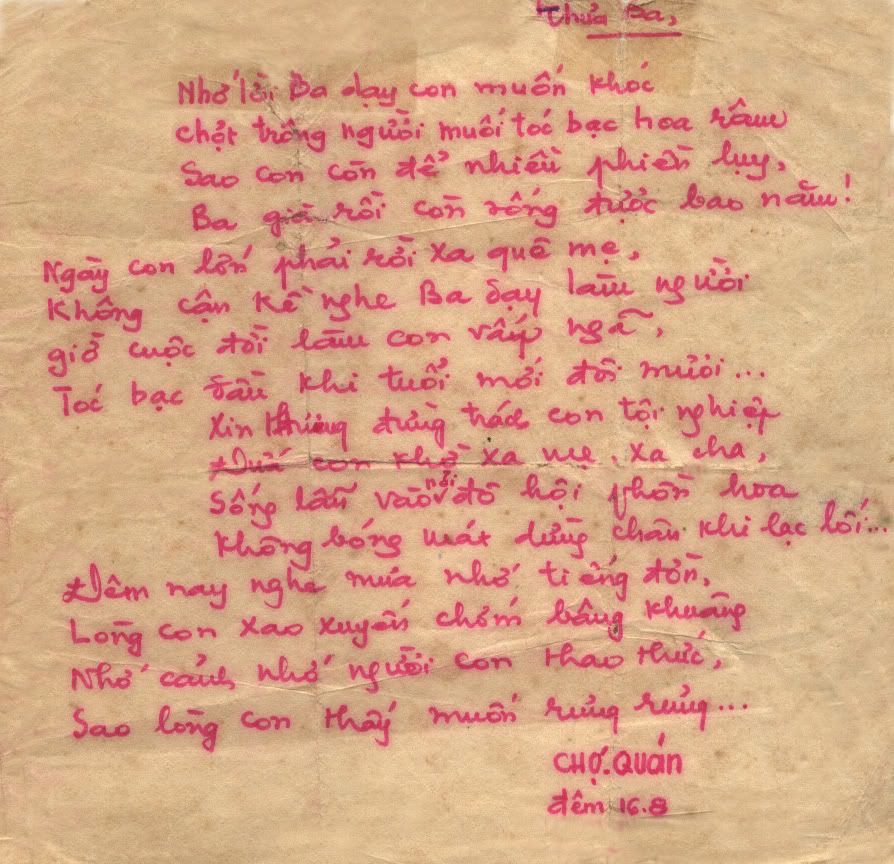 Thưa Ba,
Nhớ lời Ba dạy con muốn khóc
chợt trông người muối tóc bạc hoa râm
Sao con còn để nhiều phiền lụy,
Ba già rồi còn sống được bao năm!
Ngày con lớn phải rời xa quê mẹ,
Không cận kề nghe Ba dạy làm người
giờ cuộc đời làm con vấp ngã,
Tóc bạc đầu khi tuổi mới đôi mươi...
Xin đừng trách con tội nghiệp
Đứa con khờ xa mẹ, xa cha,
Sống lẫn vào nơi đô hội phồn hoa
Không bóng mát dừng chân khi lạc lối...
Đêm nay nghe mưa nhớ tiếng đờn,
Lòng con xao xuyến chớm bâng khuâng
Nhớ cảnh, nhớ người con thao thức,
Sao lòng con thấy muốn rưng rưng...
CHỢ.QUÁN
đêm 16.8